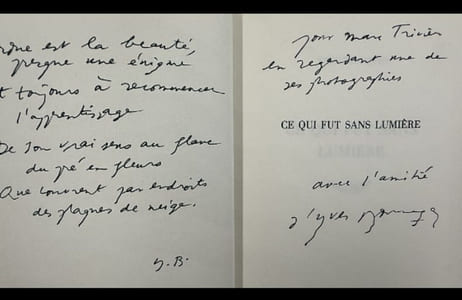 rdue est la beauté,
presque une énigme
t toujours à recommencer
l'apprentissage
De son vrai sens au flanc
du pré en fleurs
Que couvrent par endroits
des plaques de neige.
Y. B.
pour Marc Trivier
en regardant une de
ses photographies
CE QUI FUT SANS LUMIÈRE
avec l'amitié
d'Yves Bonnefoy